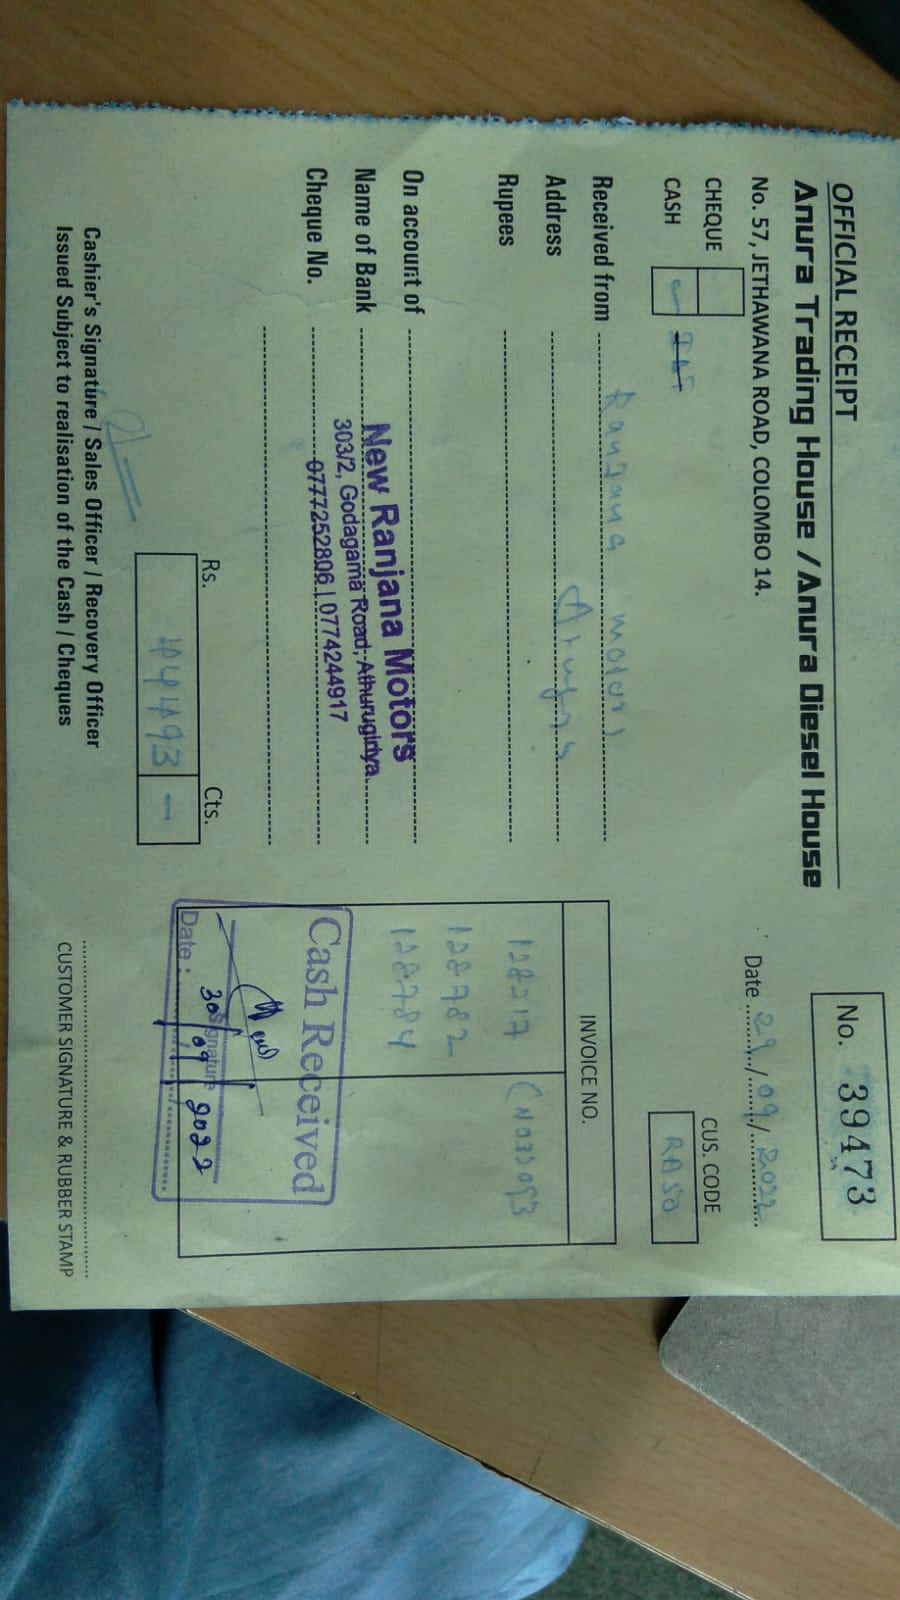 OFFICIAL RECEIPT
No. 39473
Anura Trading House / Anura Diesel House
No. 57, JETHAWANA ROAD, COLOMBO 14.
Date 29/09/2022
CHEQUE
CASH
CUS. CODE
RA50
Received from Ranjana motors
Address
Rupees
On account of
Name of Bank
Cheque No.
New Ranjana Motors
303/2, Godagama Road, Athurugiriya.
0777252806 | 0774244917
INVOICE NO.
128782
128784
Cash Received
Signature
Date : 30/09/2022
Rs. Cts.
Cashier's Signature / Sales Officer / Recovery Officer
Issued Subject to realisation of the Cash / Cheques
CUSTOMER SIGNATURE & RUBBER STAMP